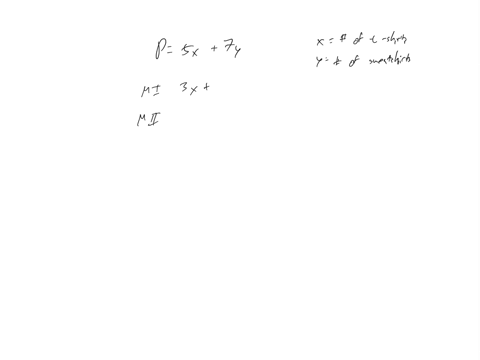 P = 5x + 7y
x = # of t-shirts
y = # of sweatshirts
M I 3x +
M II